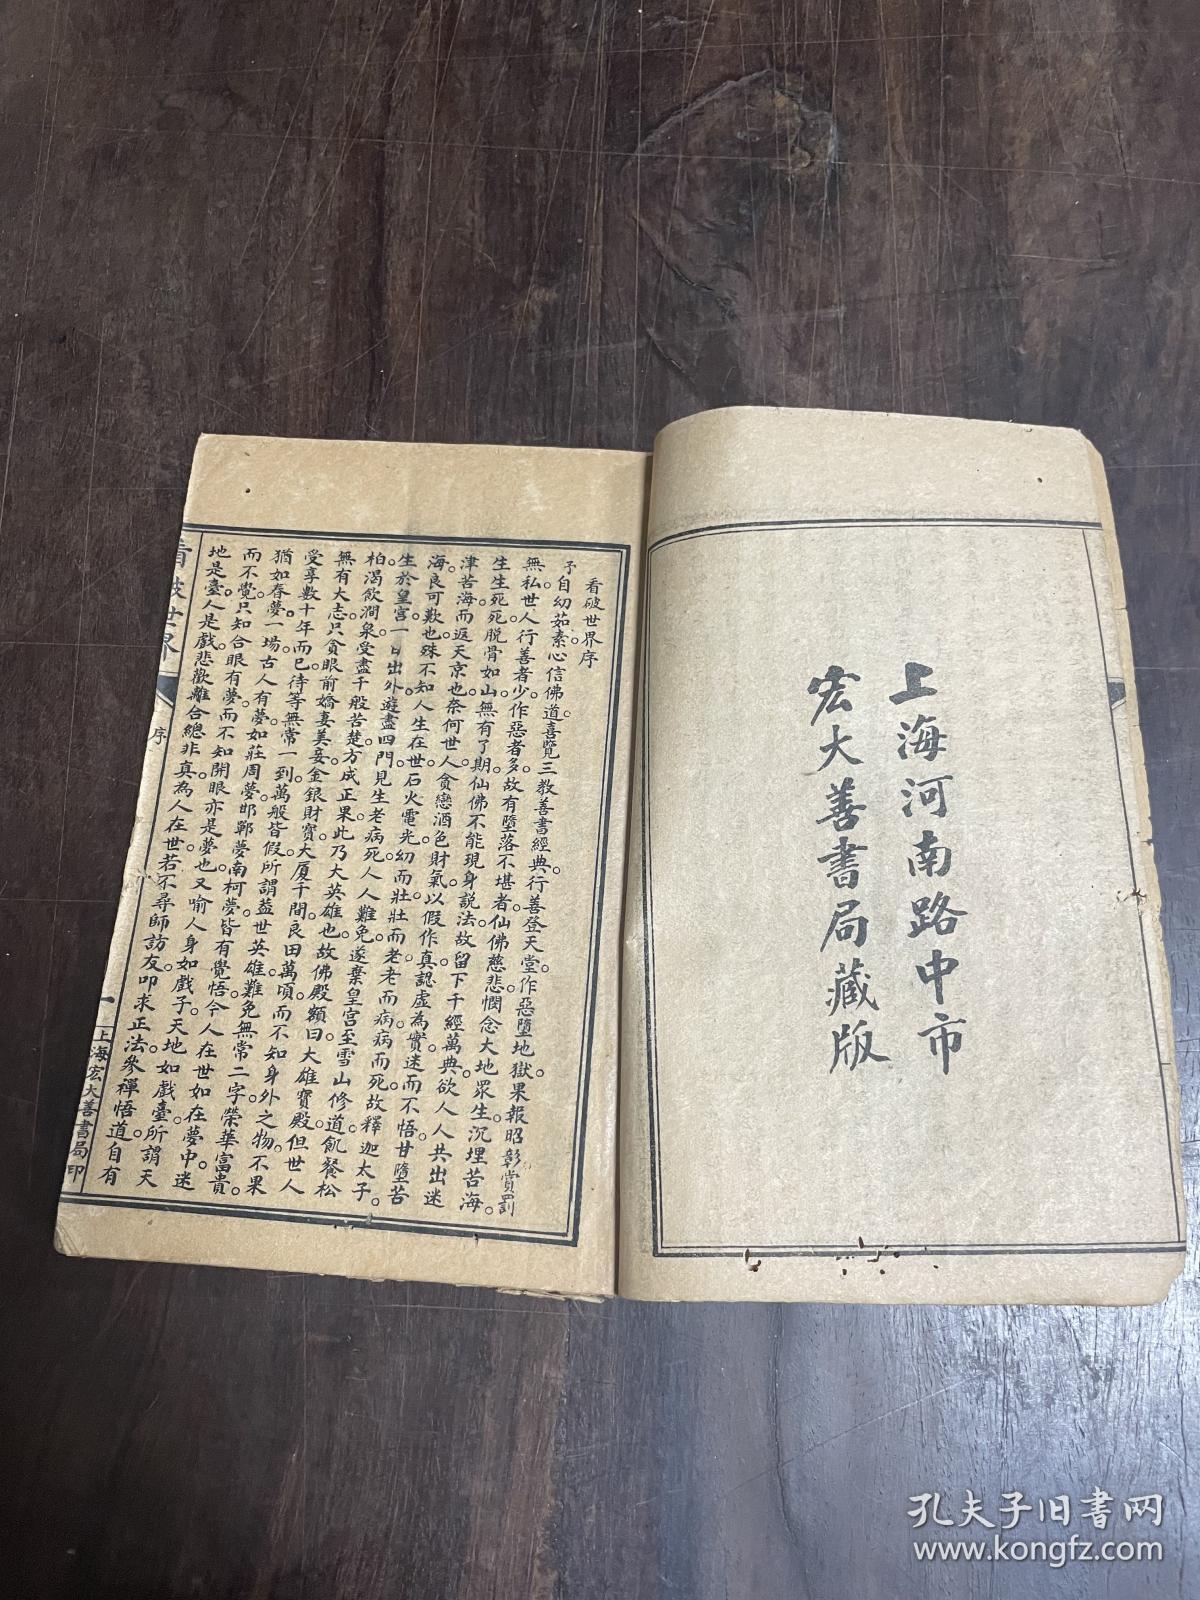 上海河南路中市
宏大善書局藏版
看破世界序
予自幼茹素。心信佛道。喜覽三教善書經典。行善登天堂。作惡墮地獄。果報昭彰。賞罰
無私。世人行善者少。作惡者多。故有墮落不堪者。仙佛慈悲。憫念大地眾生。沉埋苦海。
生生死死。脫骨如山。無有了期。仙佛不能現身說法。故留下千經萬典。欲人人共出迷
津苦海。而返天京也。奈何世人貪戀酒色財氣。以假作真。認虛為實。迷而不悟。甘墮苦
海。良可歎也。殊不知人生在世。石火電光。幼而壯。壯而老。老而病。病而死。故釋迦太子。
生於皇宮。一日出外。遊盡四門。見生老病死。人人難免。遂棄皇宮。至雪山修道。飢餐松
柏。渴飲澗泉。受盡千般苦楚。方成正果。此乃大英雄也。故佛殿額曰大雄寶殿。但世人
無有大志。只貪眼前嬌妻美妾。金銀財寶。大厦千間。良田萬頃。而不知身外之物。不果
受享數十年而已。待等無常一到。萬般皆假。所謂蓋世英雄。難免無常二字。榮華富貴。
猶如春夢一場。古人有夢。如莊周夢。邯鄲夢。南柯夢。皆有覺悟。今人在世。如在夢中。迷
而不覺。只知合眼有夢。而不知開眼亦是夢也。又喻人身如戲子。天地如戲臺。所謂天
地是臺。人是戲。悲歡離合總非真。為人在世。若不尋師訪友。叩求正法。參禪悟道。自有
看破世界
序
一
上海宏大善書局印
孔夫子旧书网
www.kongfz.com